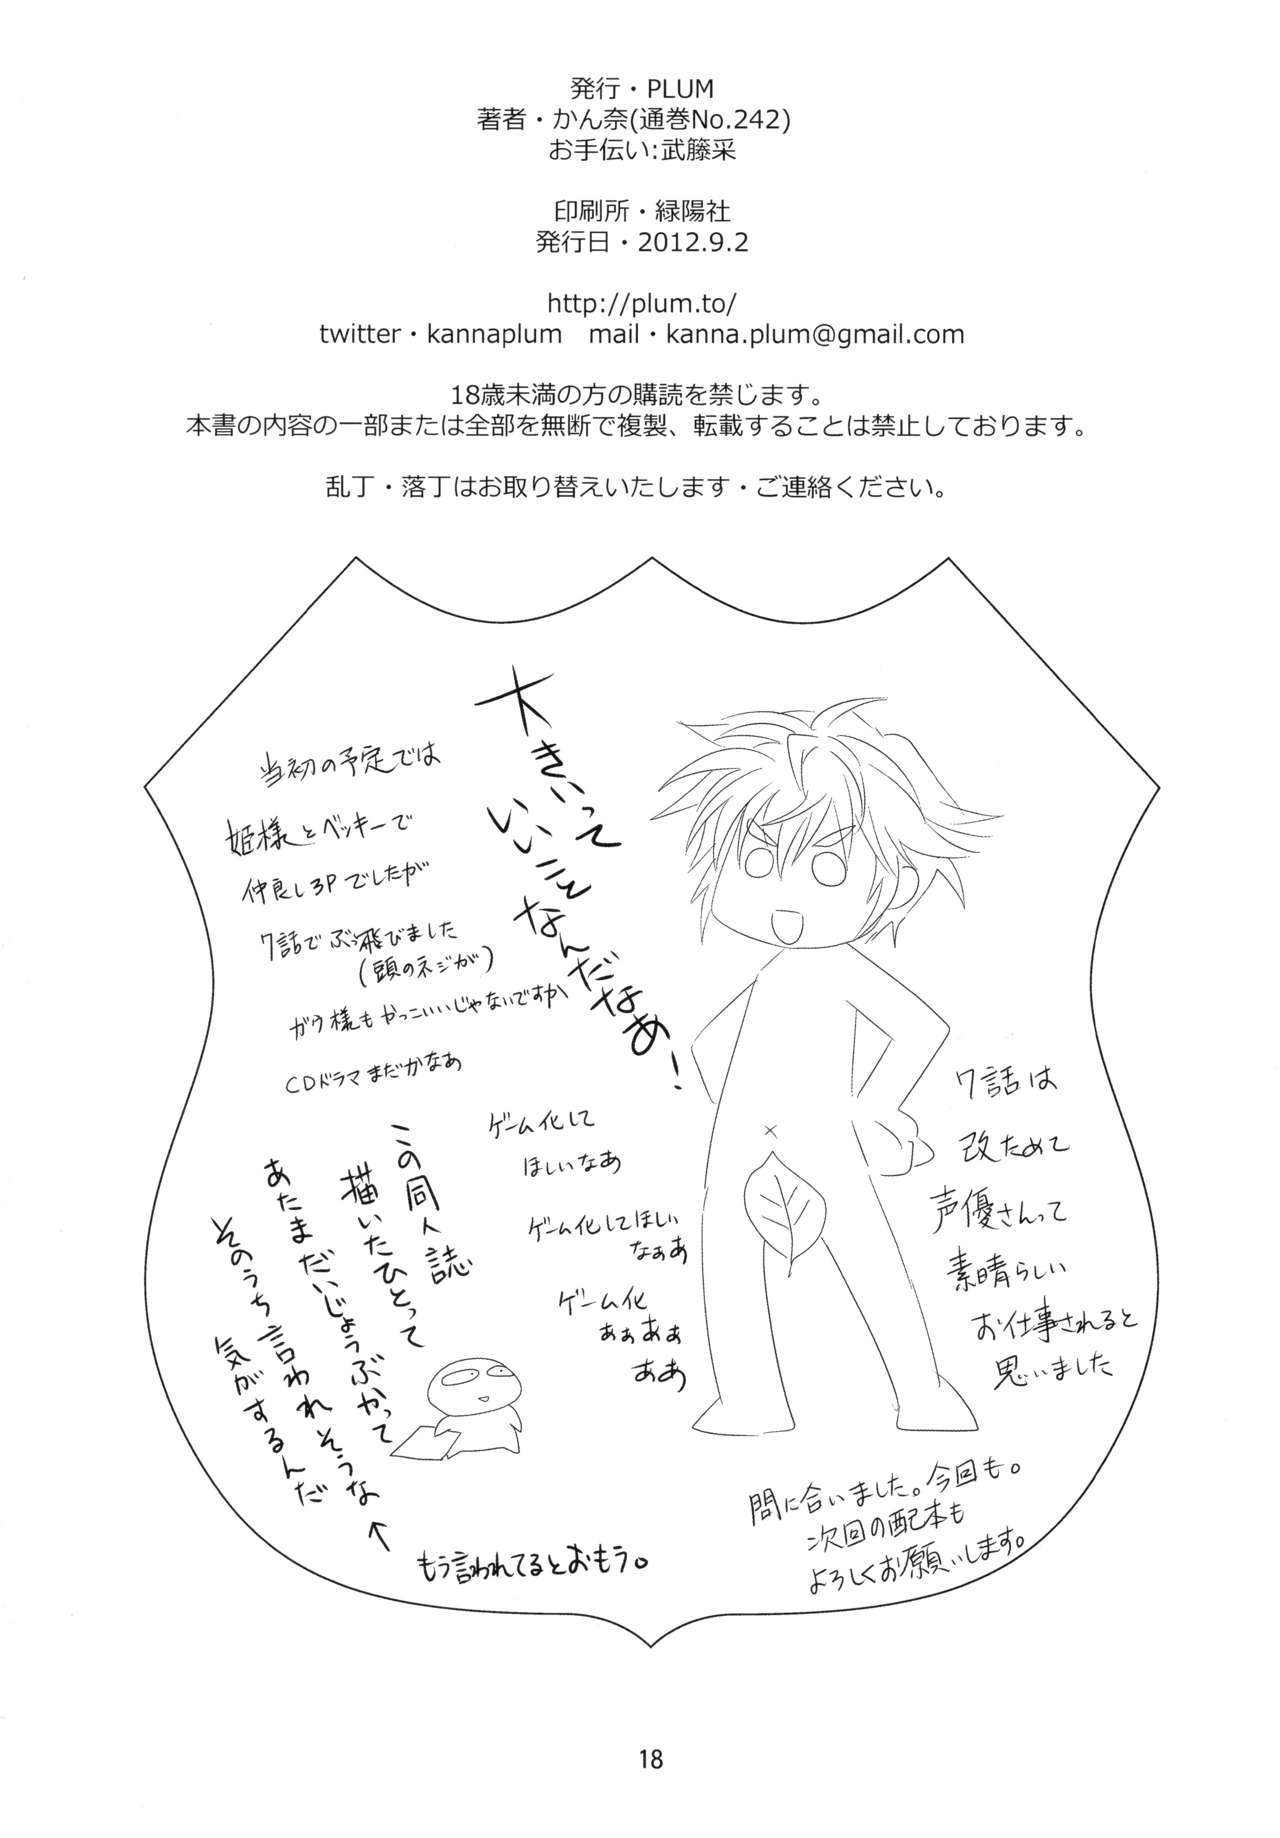 発行・PLUM
著者・かん奈(通巻No.242)
お手伝い:武藤采
印刷所・緑陽社
発行日・2012.9.2
http://plum.to/
twitter・kannaplum　mail・kanna.plum@gmail.com
18歳未満の方の購読を禁じます。
本書の内容の一部または全部を無断で複製、転載することは禁止しております。
乱丁・落丁はお取り替えいたします・ご連絡ください。
大きいって
いいこと
なんだなあ!
当初の予定では
姫様とベッキーで
仲良し3Pでしたが
7話でぶっ飛びました
(頭のネジが)
ガウ様もかっこいいじゃないですか
CDドラマまだかなあ
ゲーム化して
ほしいなあ
ゲーム化してほしい
なぁぁ
ゲーム化
ぁぁぁぁ
ああ
この同人誌
描いたひとって
あたまだいじょうぶかって
そのうち言われそうな
気がするんだ
←もう言われてるとおもう。
7話は
改ためて
声優さんって
素晴らしい
お仕事されると
思いました
間に合いました。今回も。
次回の配本も
よろしくお願いします。
18